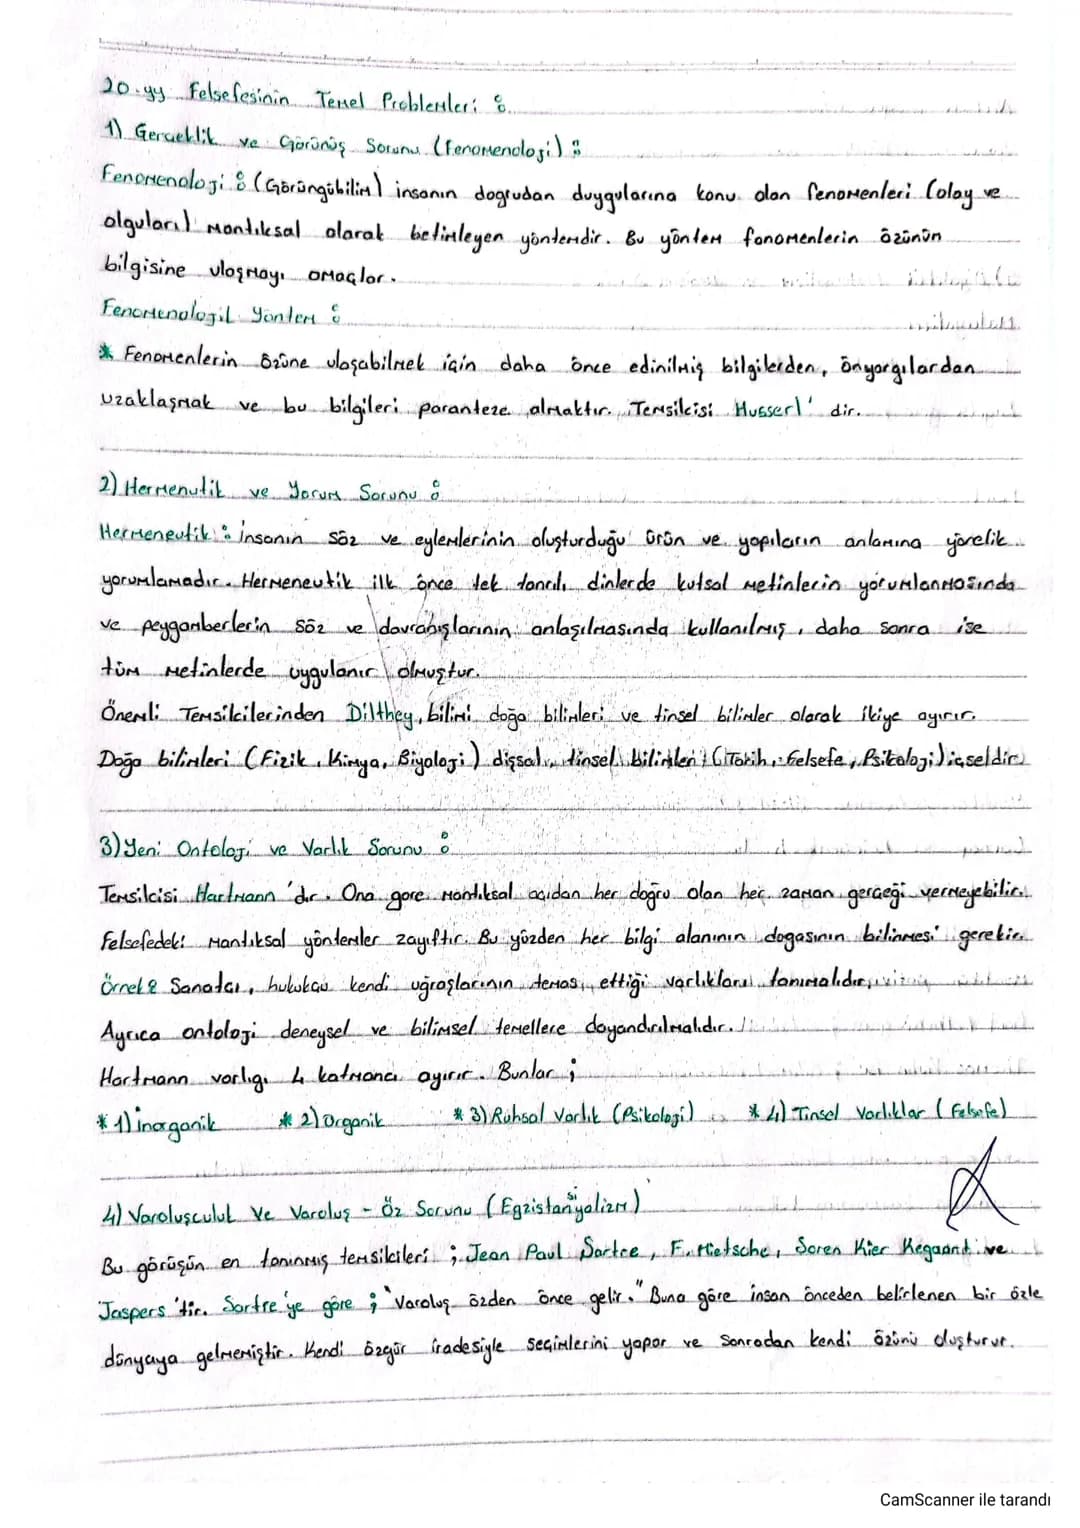 20.yy Felsefesinin Temel Problemleri :
1) Gerçeklik ve Görünüş Sorunu (fenomenoloji) :
Fenomenoloji : (Görüngübilim) insanın dogrudan duygularına konu olan fenomenleri (olay ve
olguları) mantıksal olarak betimleyen yöntemdir. Bu yöntem fonomenlerin özünün
bilgisine ulaşmayı amaçlar.
Fenomenolojik Yöntem :
* Fenomenlerin özüne ulaşabilmek için daha önce edinilmiş bilgilerden, önyargılardan
uzaklaşmak ve bu bilgileri paranteze almaktır. Temsilcisi Husserl' dir.
2) Hermenutik ve Yorum Sorunu :
Hermeneutik : insanın söz ve eylemlerinin oluşturduğu ürün ve yapıların anlamına yönelik
yorumlamadır. Hermeneutik ilk önce tek tanrılı dinlerde kutsal metinlerin yorumlanmasında
ve peygamberlerin söz ve davranışlarının anlaşılmasında kullanılmış, daha sonra ise
tüm metinlerde uygulanır olmuştur.
Önemli Temsilcilerinden Dilthey, bilimi doğa bilimleri ve tinsel bilimler olarak ikiye ayırır.
Doğa bilimleri (Fizik, Kimya, Biyoloji) dışsal, tinsel bilimler (Tarih, Felsefe, Psikoloji) içseldir.
3) Yeni Ontoloji ve Varlık Sorunu :
Temsilcisi Hartmann 'dır. Ona gore mantıksal açıdan her doğru olan her zaman gerçeği vermeyebilir.
Felsefedeki mantıksal yöntemler zayıftır. Bu yüzden her bilgi alanının dogasının bilinmesi gerekir.
Örnek : Sanatcı, hukukcu kendi uğraşlarının temas ettiği varlıkları tanımalıdır.
Ayrıca ontoloji deneysel ve bilimsel temellere dayandırılmalıdır.
Hartmann varlıgı 4 katmana ayırır. Bunlar ;
* 1) inorganik * 2) Organik * 3) Ruhsal Varlık (Psikoloji) * 4) Tinsel Varlıklar (Felsefe)
4) Varoluşculuk Ve Varoluş - Öz Sorunu (Egzistansiyalizm)
Bu görüşün en tanınmış temsilcileri ; Jean Paul Sartre, F. Nietsche, Soren Kier Kegaard ve
Jaspers 'tir. Sartre 'ye göre ; "Varoluş özden önce gelir." Buna göre insan önceden belirlenen bir özle
dünyaya gelmemiştir. Kendi özgür iradesiyle seçimlerini yapar ve sonradan kendi özünü oluşturur.
CamScanner ile tarandı